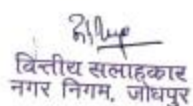 वित्तीय सलाहकार
नगर निगम, जोधपुर